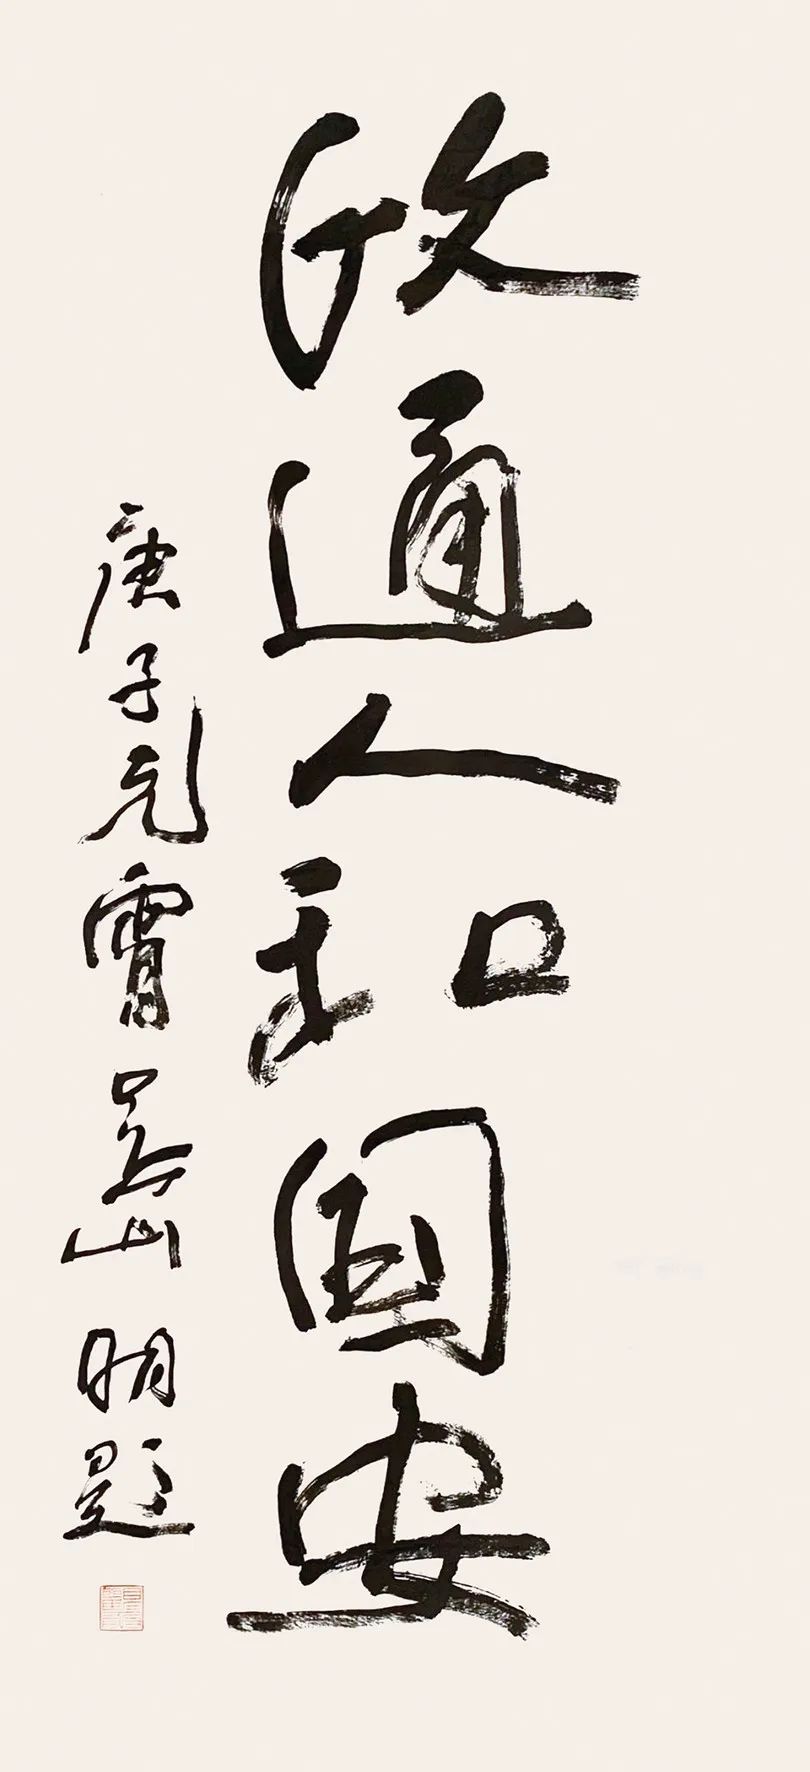 政通人和国安
庚子元宵吴山明题